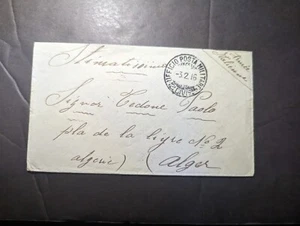 Stimatissimo
UFFICIO POSTA MILITARE
-3.2.16
Signor Tedone Paolo
pla de la lyre No 2
algerie) (Alger